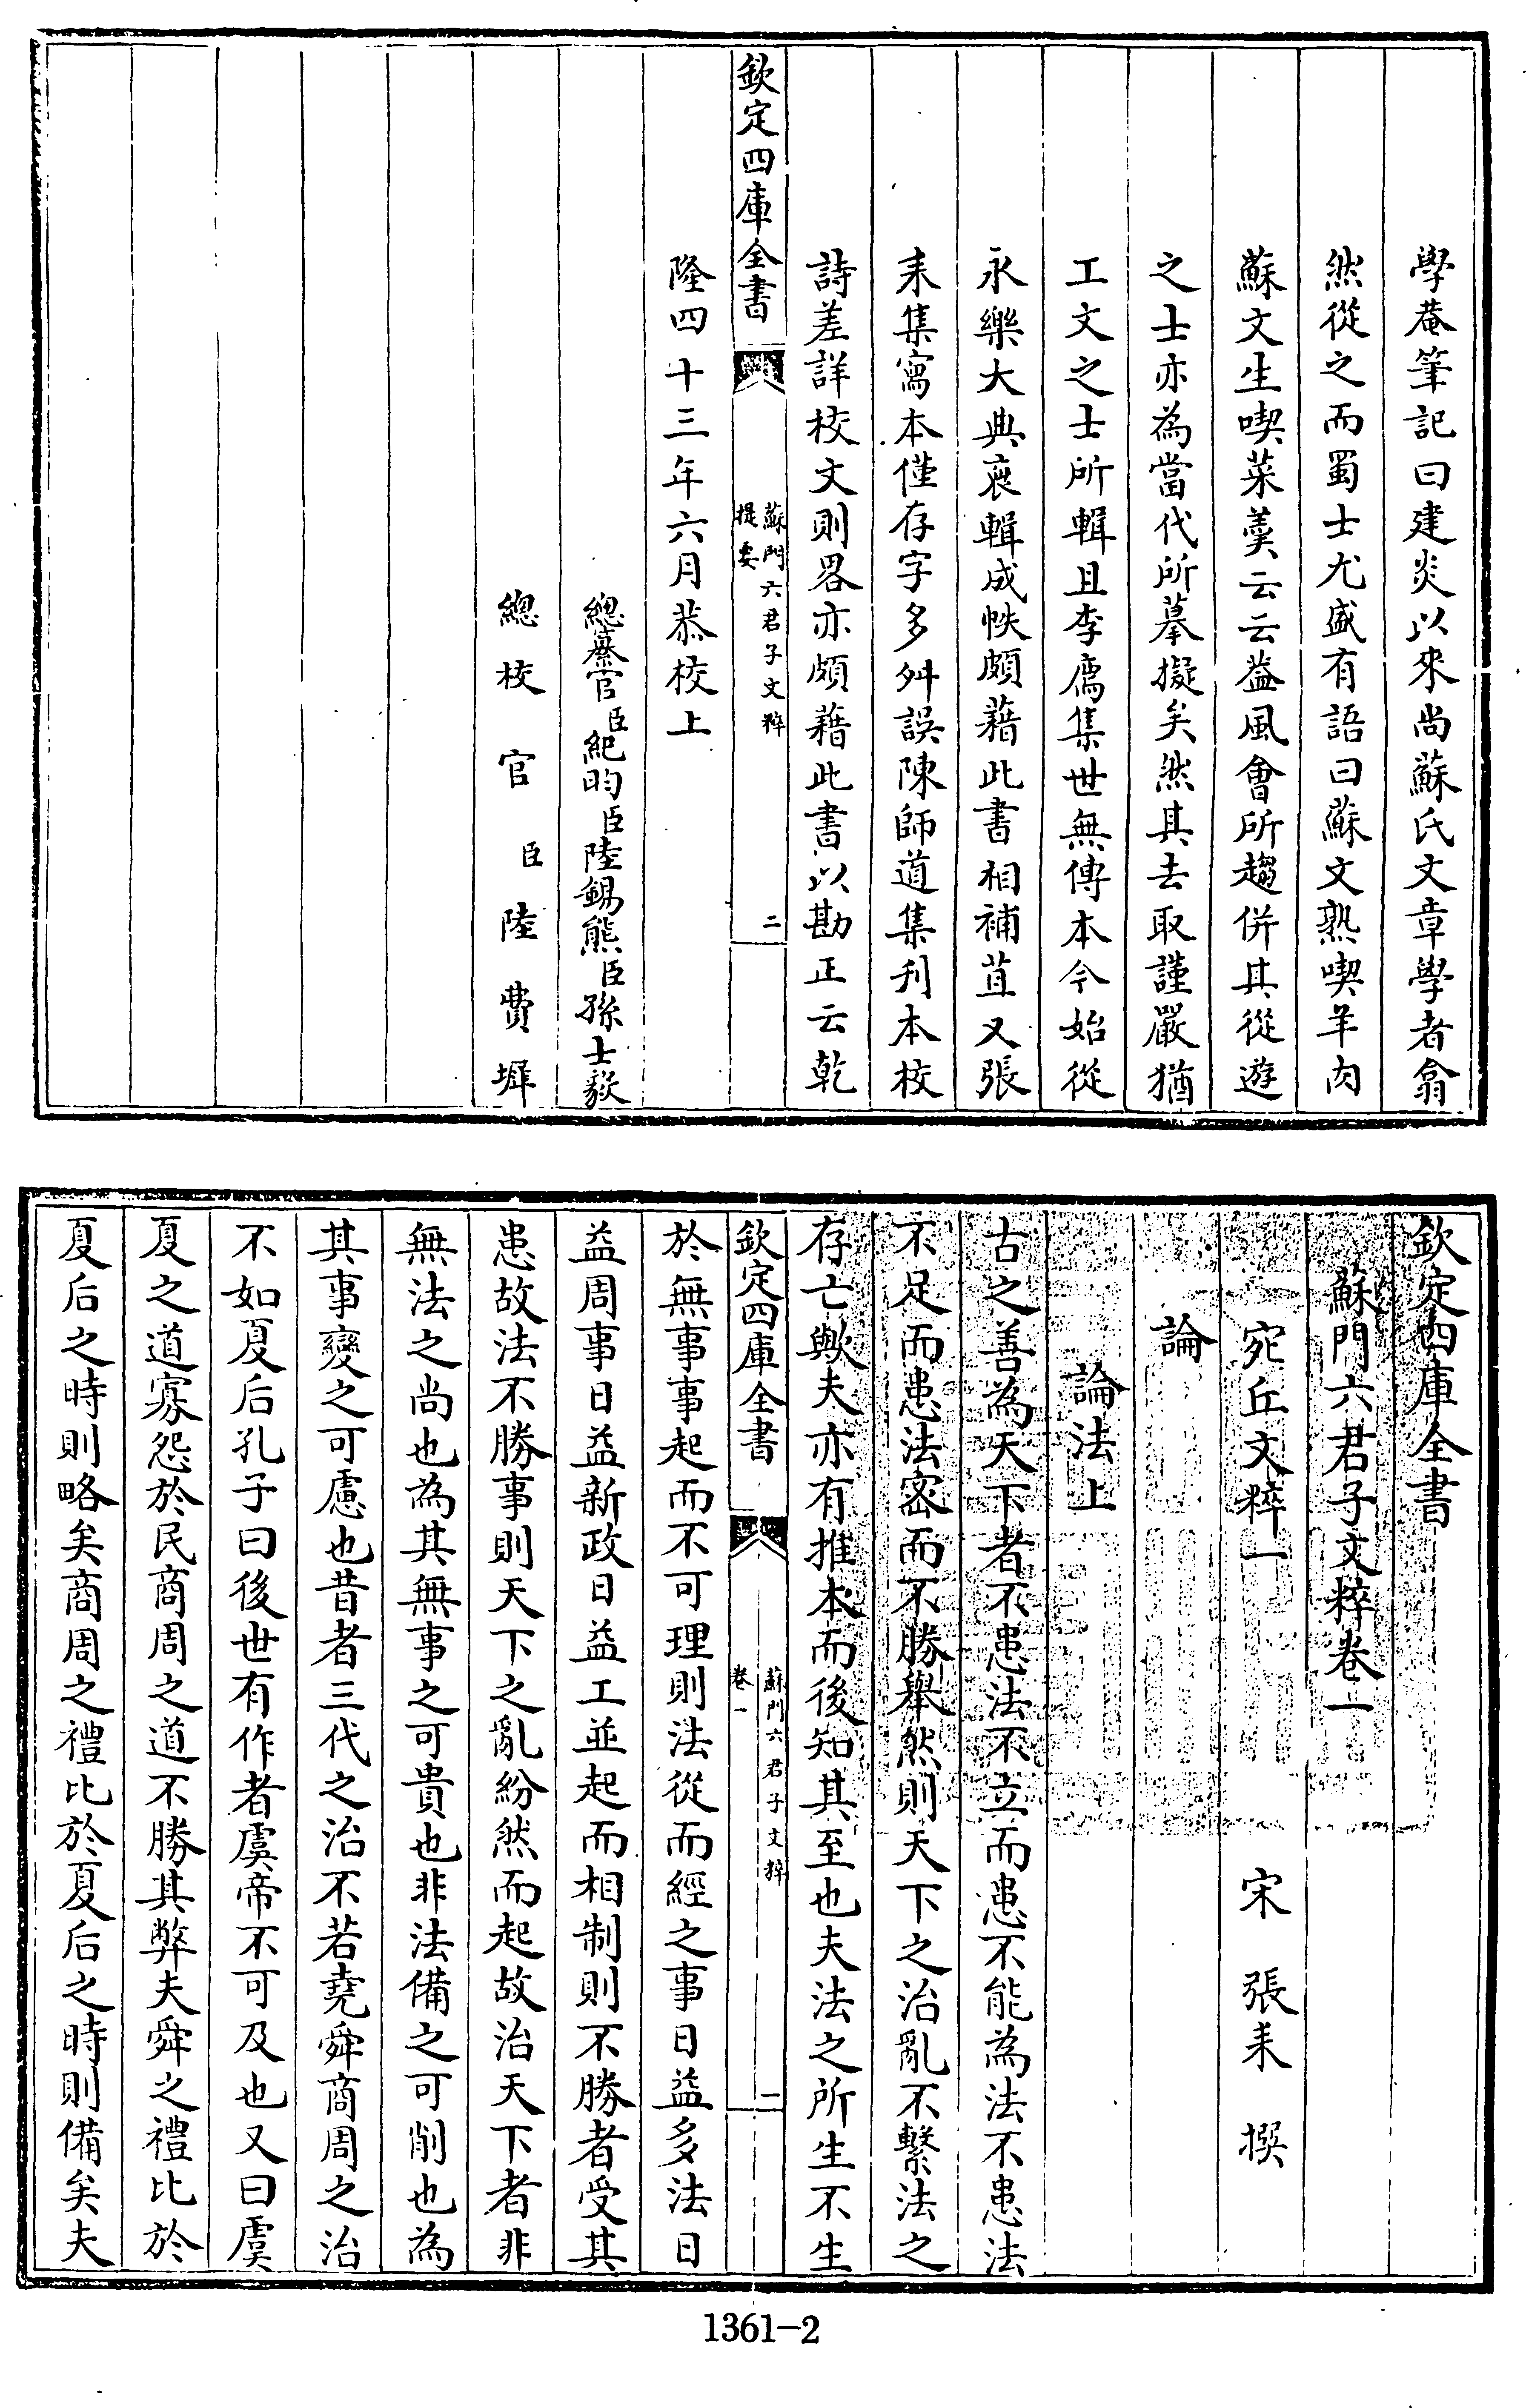 學菴筆記曰建炎以來尚蘇氏文章學者翕
然從之而蜀士尤盛有語曰蘇文熟喫羊肉
蘇文生喫菜羹云云葢風會所趨併其從遊
之士亦為當代所摹擬矣然其去取謹嚴猶
工文之士所輯且李廌集世無傳本今始從
永樂大典裒輯成帙頗藉此書相補苴又張
耒集寫本僅存字多舛誤陳師道集刋本校
詩差詳校文則畧亦頗藉此書以勘正云乾
欽定四庫全書
蘇門六君子文粹
提要
二
隆四十三年六月恭校上
總纂官臣紀昀臣陸錫熊臣孫士毅
總校官臣陸費墀
欽定四庫全書
蘇門六君子文粹卷一
宛丘文粹一
宋 張耒 撰
論
論法上
古之善為天下者不患法不立而患不能為法不患法
不足而患法密而不勝舉然則天下之治亂不繫法之
存亡歟夫亦有推本而後知其至也夫法之所生不生
欽定四庫全書
蘇門六君子文粹
卷一
一
於無事事起而不可理則法從而經之事日益多法日
益周事日益新政日益工並起而相制則不勝者受其
患故法不勝事則天下之亂紛然而起故治天下者非
無法之尚也為其無事之可貴也非法備之可削也為
其事變之可慮也昔者三代之治不若堯舜商周之治
不如夏后孔子曰後世有作者虞帝不可及也又曰虞
夏之道寡怨於民商周之道不勝其弊夫舜之禮比於
夏后之時則略矣商周之禮比於夏后之時則備矣夫
1361-2